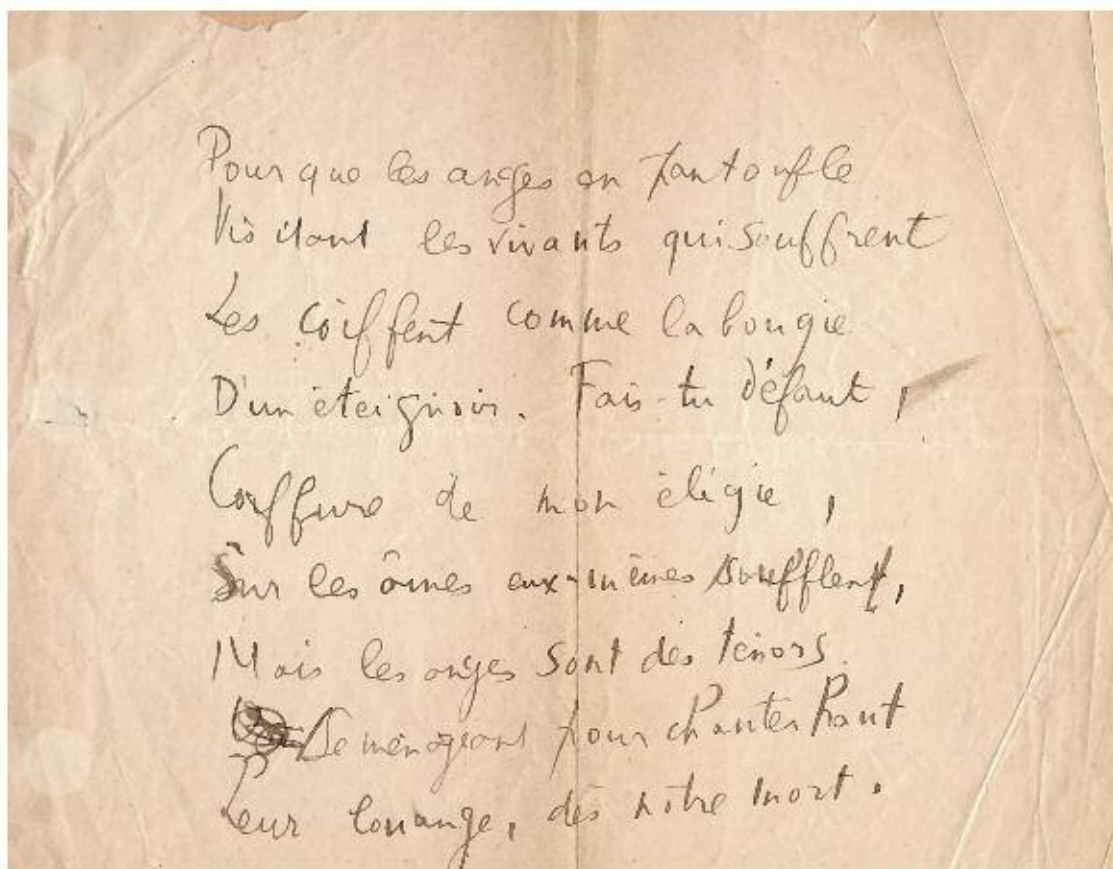 Pour que les anges en pantoufle
Visitant les vivants qui souffrent
Les coiffent comme la bougie
D'un éteignoir. Fais-tu défaut,
Coiffure de mon élégie,
Sur les âmes eux-mêmes soufflent,
Mais les anges sont des ténors
Se ménageant pour chanter haut
Leur louange, dès nôtre mort.